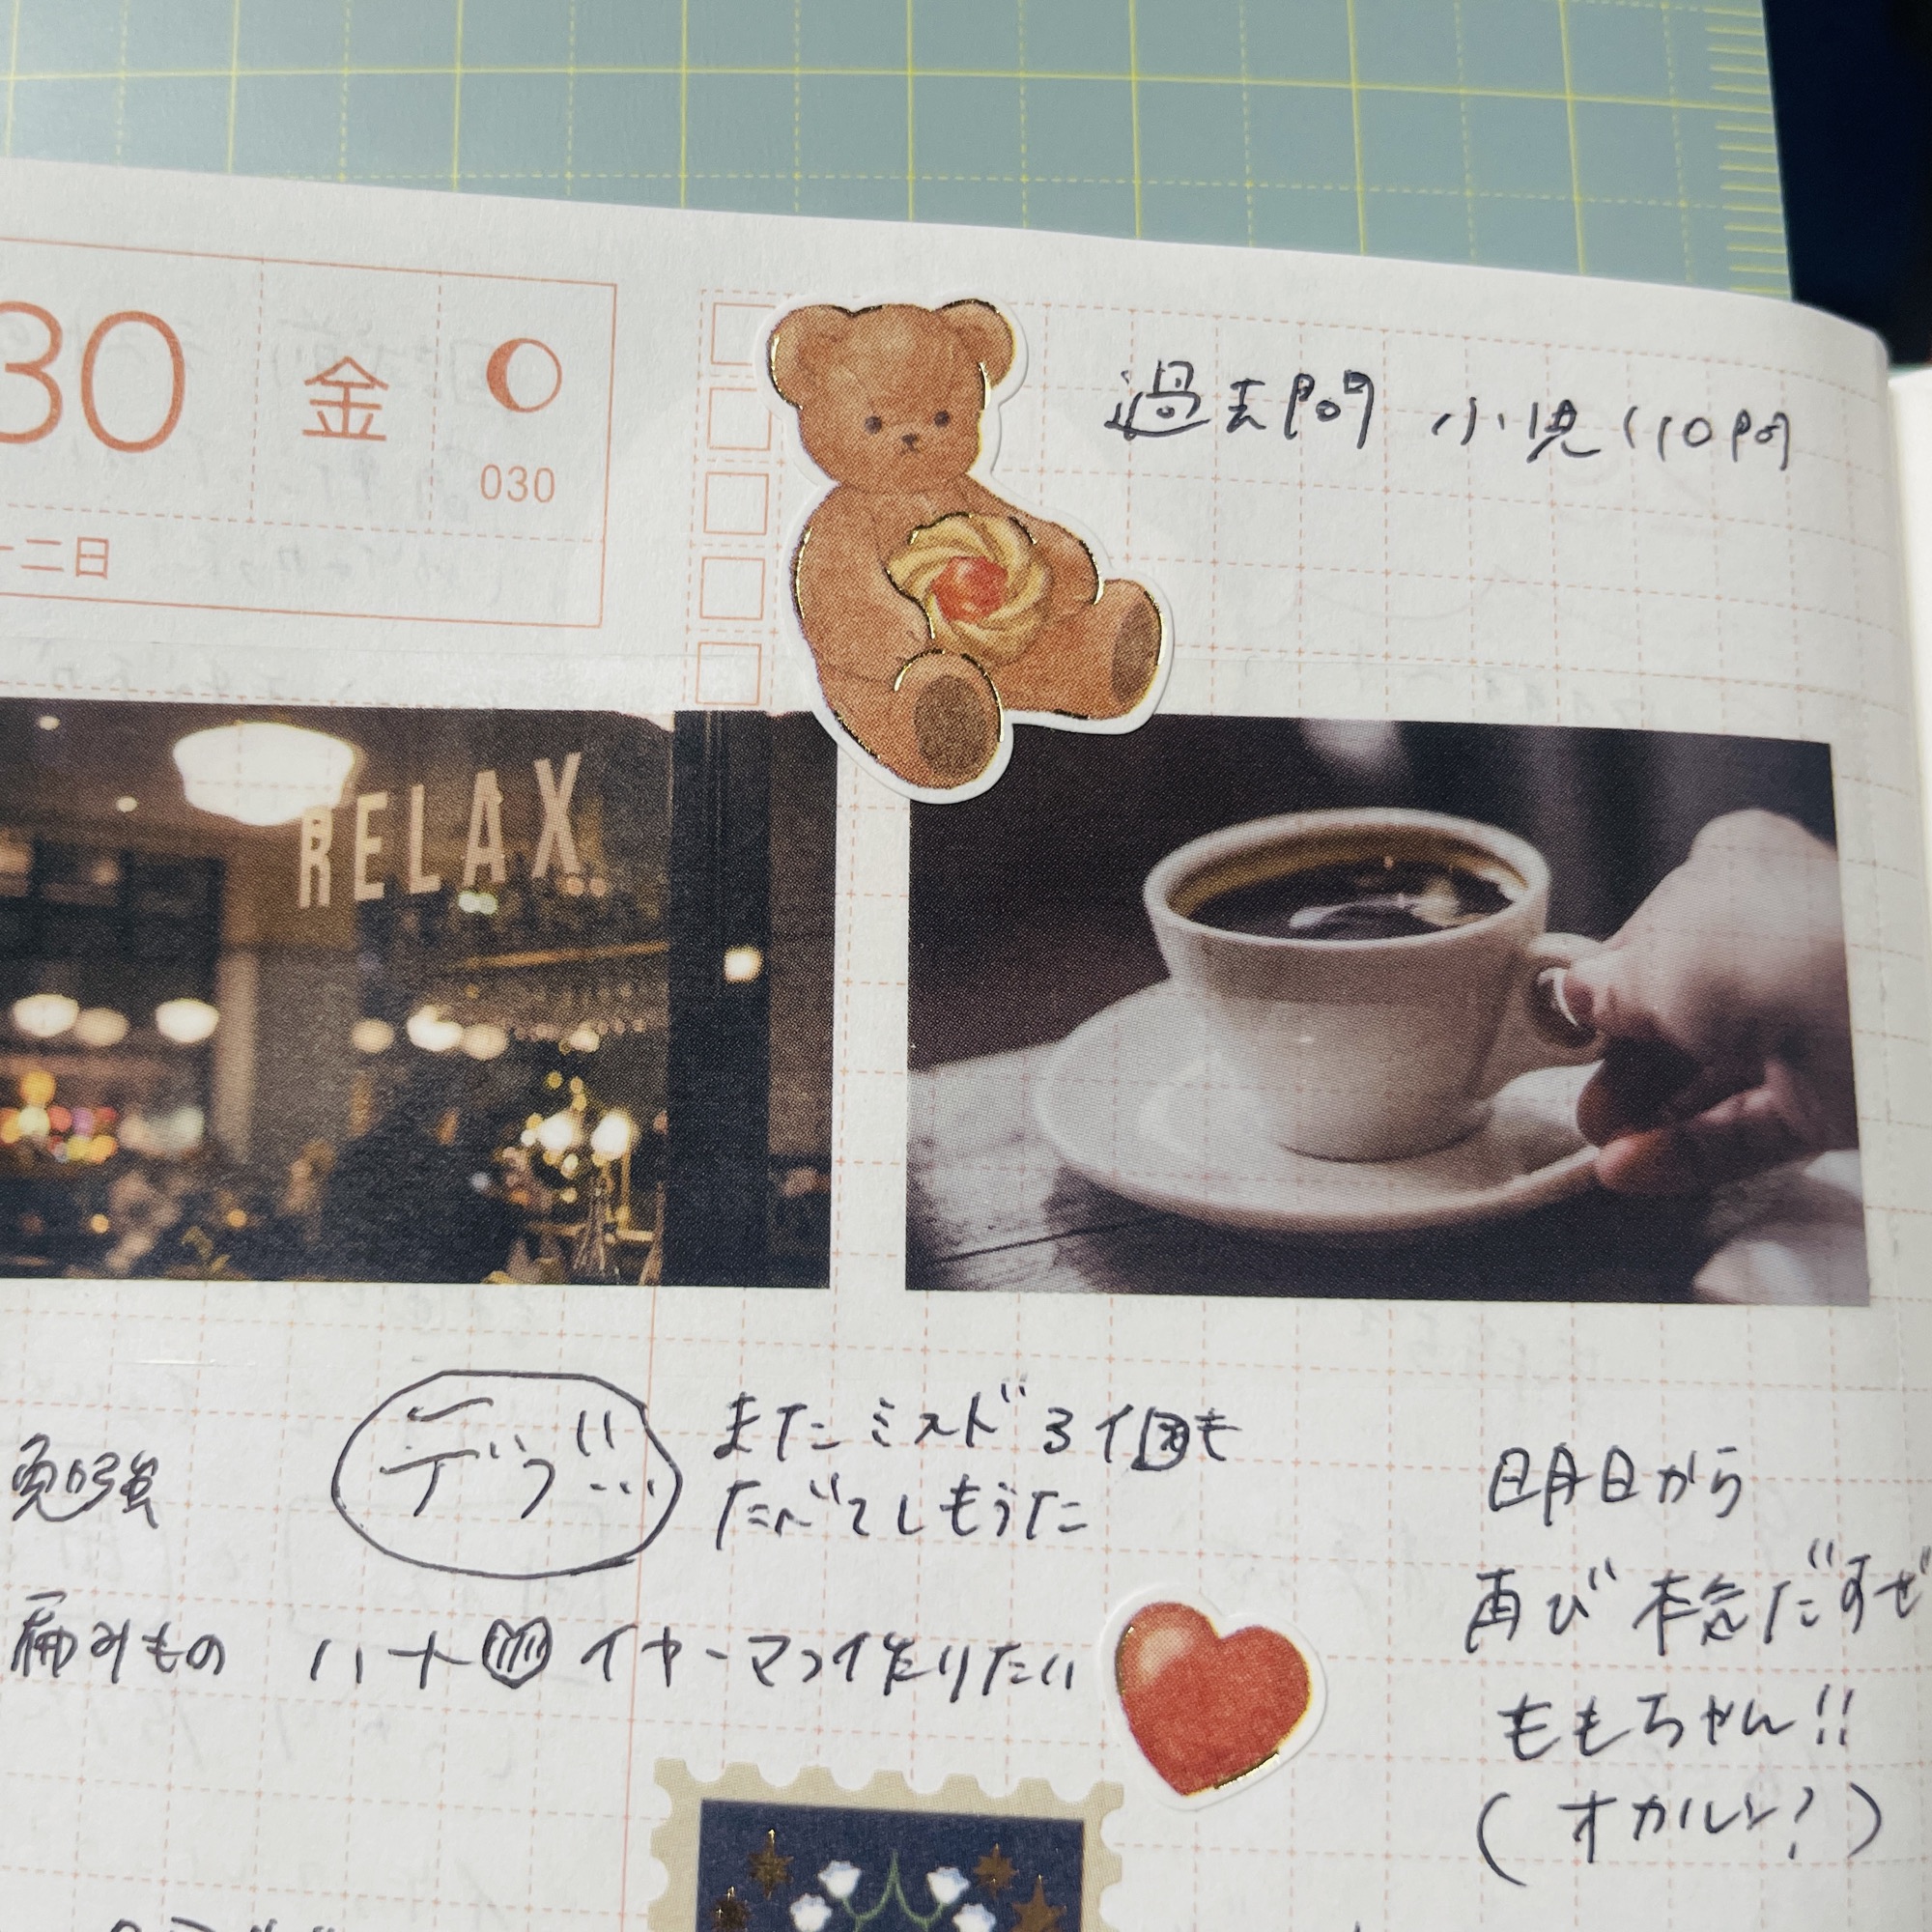 30 金
030
十二日
過去問 小児 110問
RELAX
勉強
デブ!!...
またミスド3個も
たべてしもうた
明日から
再び本気だすぜ
ももちゃん!!
(オカルン?)
編みもの ハート イヤーマフ作りたい